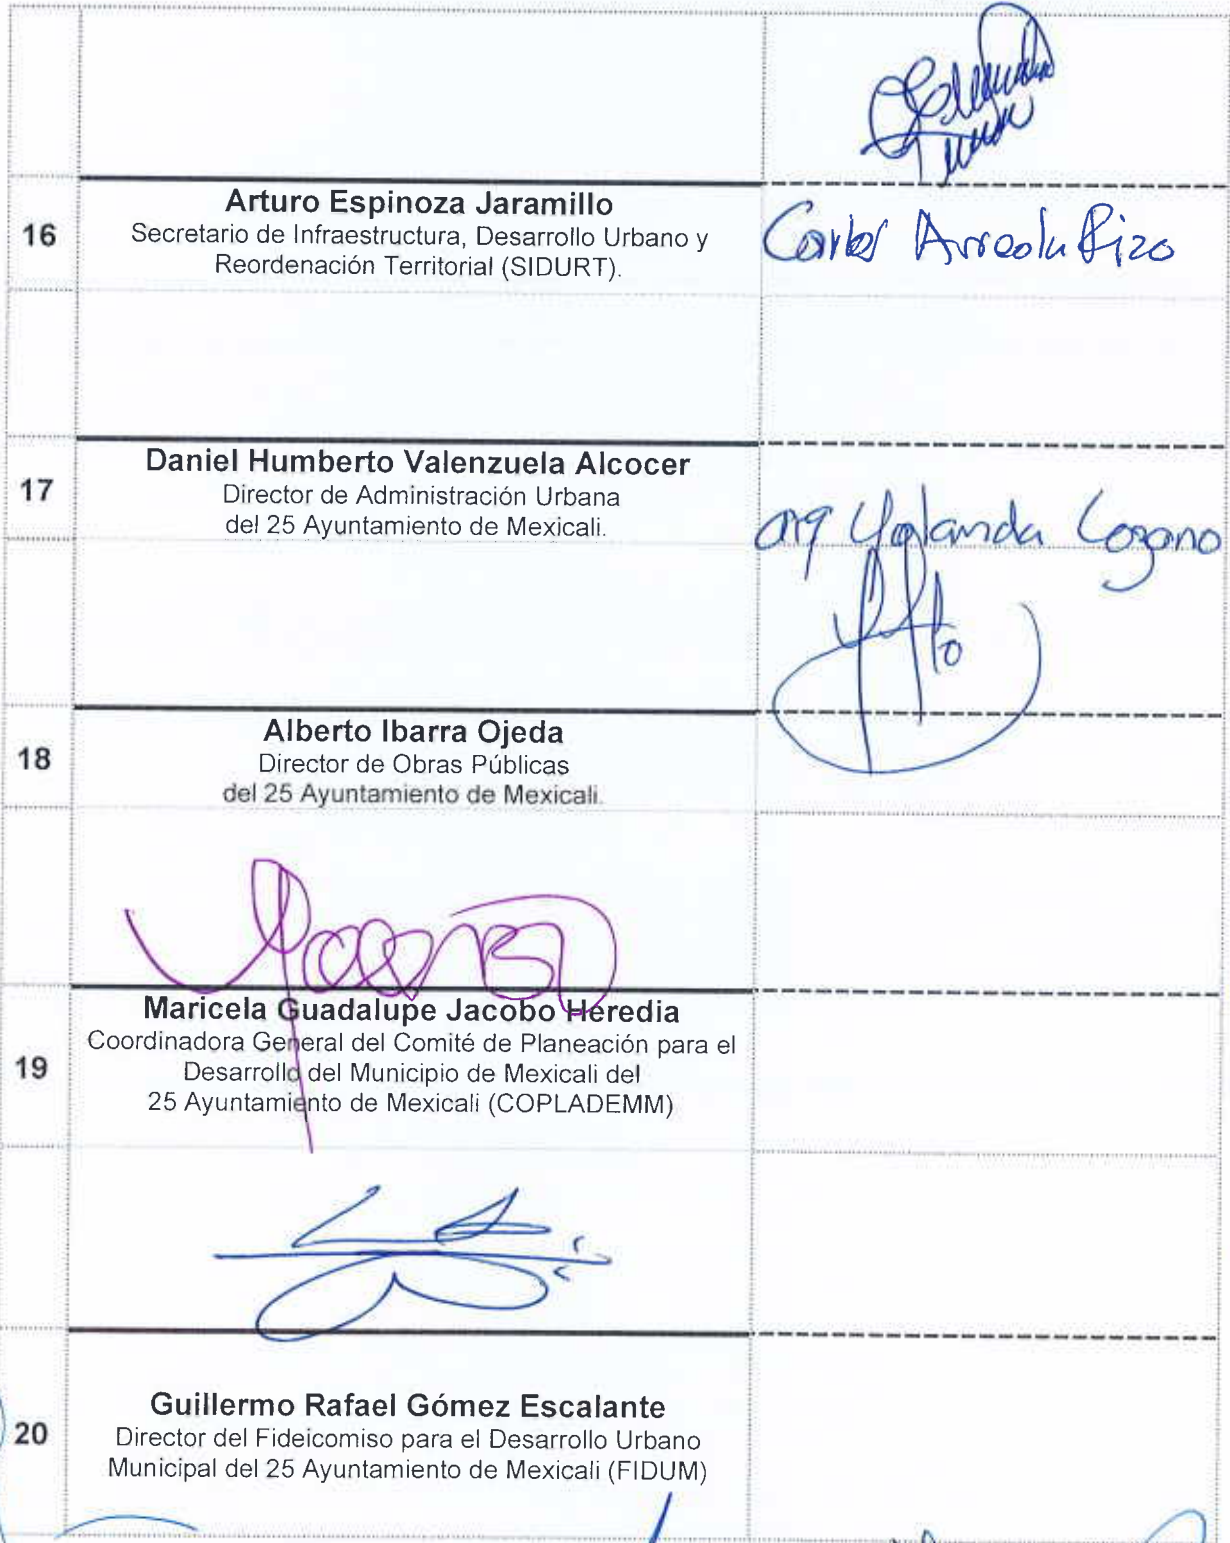 16
Arturo Espinoza Jaramillo
Secretario de Infraestructura, Desarrollo Urbano y
Reordenación Territorial (SIDURT).
Carlos Arreola Rizo
17
Daniel Humberto Valenzuela Alcocer
Director de Administración Urbana
del 25 Ayuntamiento de Mexicali.
arq Yolanda Lozano
18
Alberto Ibarra Ojeda
Director de Obras Públicas
del 25 Ayuntamiento de Mexicali.
19
Maricela Guadalupe Jacobo Heredia
Coordinadora General del Comité de Planeación para el
Desarrollo del Municipio de Mexicali del
25 Ayuntamiento de Mexicali (COPLADEMM)
20
Guillermo Rafael Gómez Escalante
Director del Fideicomiso para el Desarrollo Urbano
Municipal del 25 Ayuntamiento de Mexicali (FIDUM)